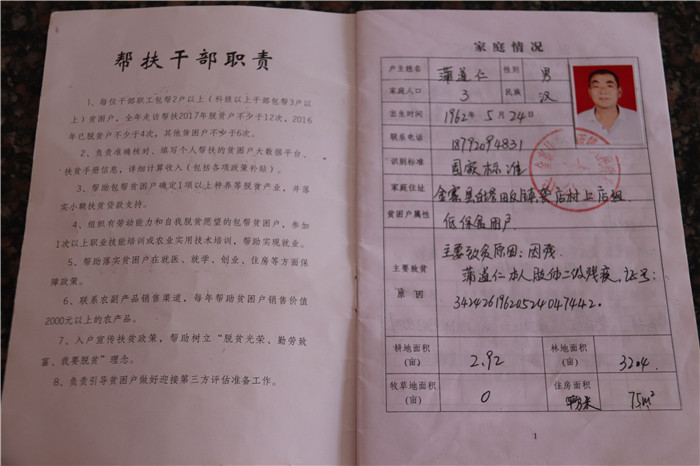 帮扶干部职责
1、每位干部职工包帮2户以上（科级以上干部包帮3户以
上）贫困户，全年走访帮扶2017年脱贫户不少于12次，2016
年已脱贫户不少于4次，其他贫困户不少于6次。
2、负责准确核对、填写个人帮扶的贫困户大数据平台、
扶贫手册信息，详细计算收入（包括各项政策补贴）。
3、帮助包帮贫困户确定1项以上种养等脱贫产业，并落
实小额扶贫贷款支持。
4、组织有劳动能力和自我脱贫愿望的包帮贫困户，参加
1次以上职业技能培训或农业实用技术培训，帮助实现就业。
5、帮助落实贫困户在就医、就学、创业、住房等方面保
障政策。
6、联系农副产品销售渠道，每年帮助贫困户销售价值
2000元以上的农产品。
7、入户宣传扶贫政策，帮助树立“脱贫光荣、勤劳致
富、我要脱贫”理念。
8、负责引导贫困户做好迎接第三方评估准备工作。
家庭情况
户主姓名 蒲道仁 性别 男
家庭人口 3 民族 汉
出生时间 1962年5月24日
联系电话 18792094831
识别标准 国家标准
家庭住址 村上店组
贫困户属性 低保贫困户
主要致贫
原因
主要致贫原因：因残
蒲道仁本人肢体二级残疾，证号：
34242619620524047442。
耕地面积
(亩)
2.92
林地面积
(亩)
3204
牧草地面积
(亩)
0
住房面积
平方米
75m²
1